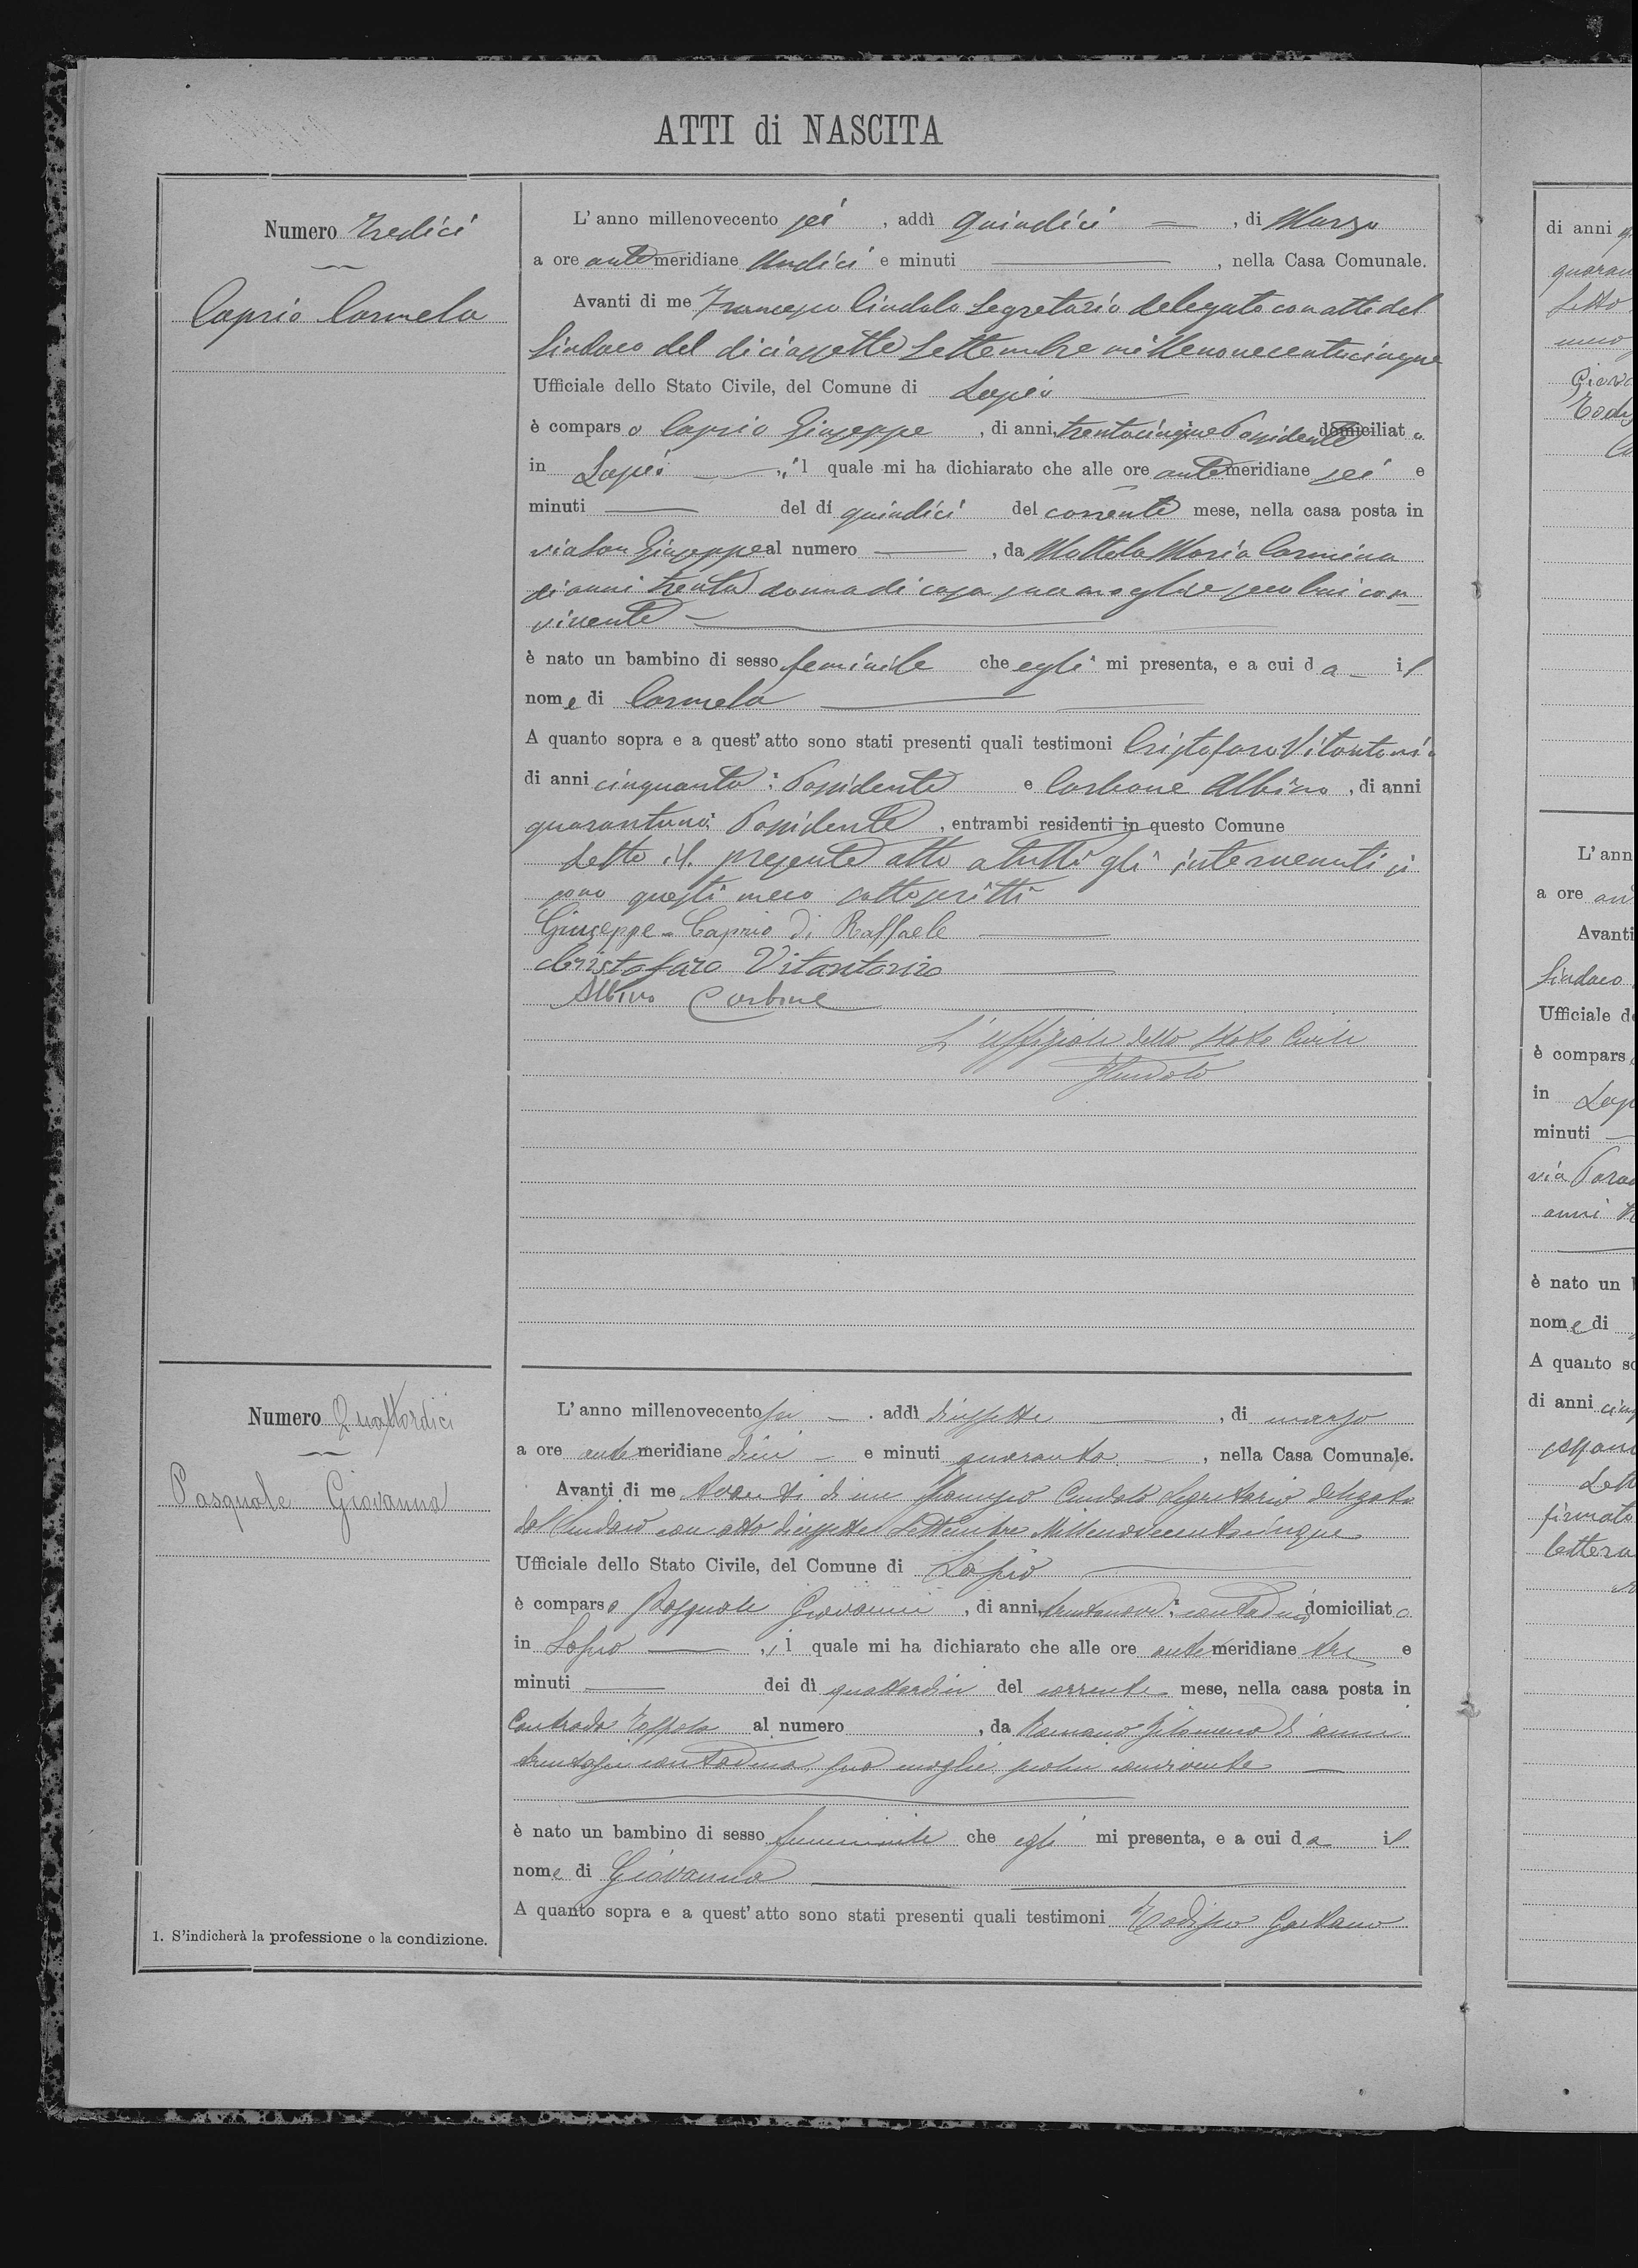 ATTI di NASCITA
Numero Tredici
Caprio Carmela
L'anno millenovecento sei, addì quindici, di Marzo
a ore antemeridiane undici e minuti, nella Casa Comunale.
Avanti di me Francesco Cindolo Segretario delegato con atto del
Sindaco del diciassette Settembre millenovecentocinque
Ufficiale dello Stato Civile, del Comune di Lapio
è comparso Caprio Giuseppe, di anni trentacinque Possidente domiciliato
in Lapio, il quale mi ha dichiarato che alle ore antemeridiane sei e
minuti del dì quindici del corrente mese, nella casa posta in
via San Giuseppe al numero, da Mottola Maria Carmina
di anni trenta donna di casa sua moglie seco lui con-
vivente
è nato un bambino di sesso feminile che egli mi presenta, e a cui da il
nome di Carmela
A quanto sopra e a quest'atto sono stati presenti quali testimoni Cristofaro Vitantonio
di anni cinquanta: Possidente e Carbone Albino, di anni
quarantuno: Possidente, entrambi residenti in questo Comune
Letto il presente atto a tutti gli intervenuti si
sono questi meco sottoscritti
Giuseppe Caprio di Raffaele
Cristofaro Vitantonio
Albino Carbone
L'uffiziale dello Stato Civile
FCindolo
Numero Quattordici
Pasquale Giovanna
L'anno millenovecento sei. addì diciassette, di marzo
a ore antemeridiane dieci e minuti quaranta, nella Casa Comunale.
Avanti di me Avanti di me Francesco Cindolo Segretario delegato
dal Sindaco con atto diciassette Settembre Millenovecentocinque
Ufficiale dello Stato Civile, del Comune di Lapio
è comparso Pasquale Giovanni, di anni trentanove: contadino domiciliato
in Lapio, il quale mi ha dichiarato che alle ore antemeridiane tre e
minuti dei dì quattordici del corrente mese, nella casa posta in
Contrada al numero, da Romano Filomena di anni
trentasei contadina, sua moglie, seco lui convivente
è nato un bambino di sesso femminile che egli mi presenta, e a cui da il
nome di Giovanna
A quanto sopra e a quest'atto sono stati presenti quali testimoni Gaetano
1. S'indicherà la professione o la condizione.
di anni
quaran
Letto
meco
Giova
L'ann
a ore an
Avanti
Sindaco
Ufficiale d
è compars
in Lap
minuti
via
anni
è nato un
nome di
A quanto so
di anni cinq
Lett
firmato
lettera